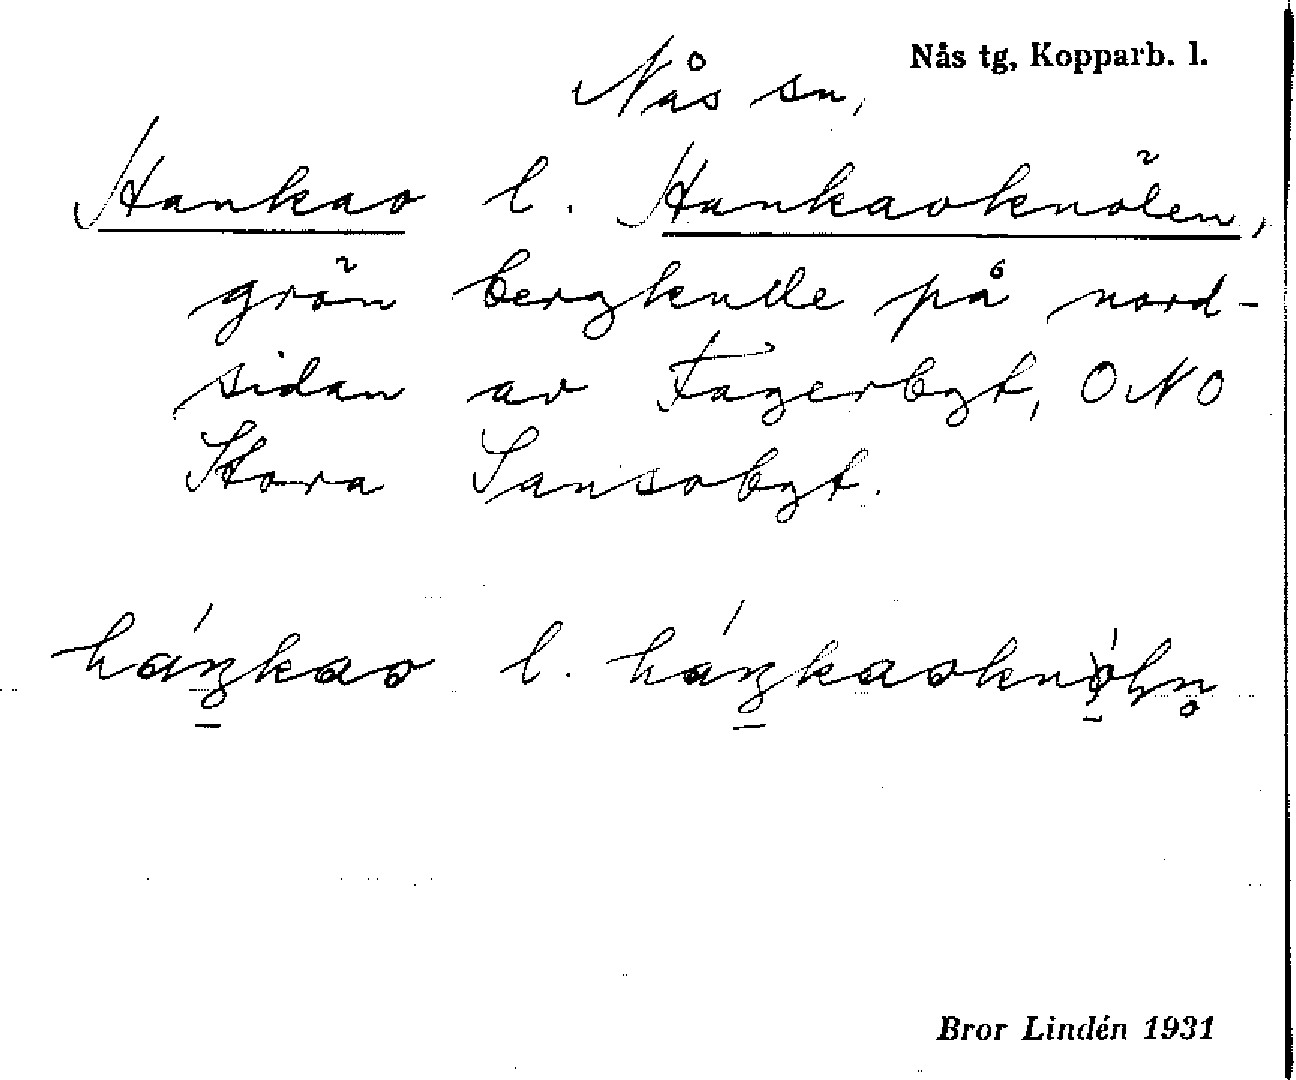 Nås tg, Kopparb. l.
Nås sn,
Hankao l. Hankaoknölen,
grön bergkulle på nord-
sidan av Fagerbgt, ONO
Stora Sansobgt.
háŋkao l. háŋkaoknøln̥
Bror Lindén 1931